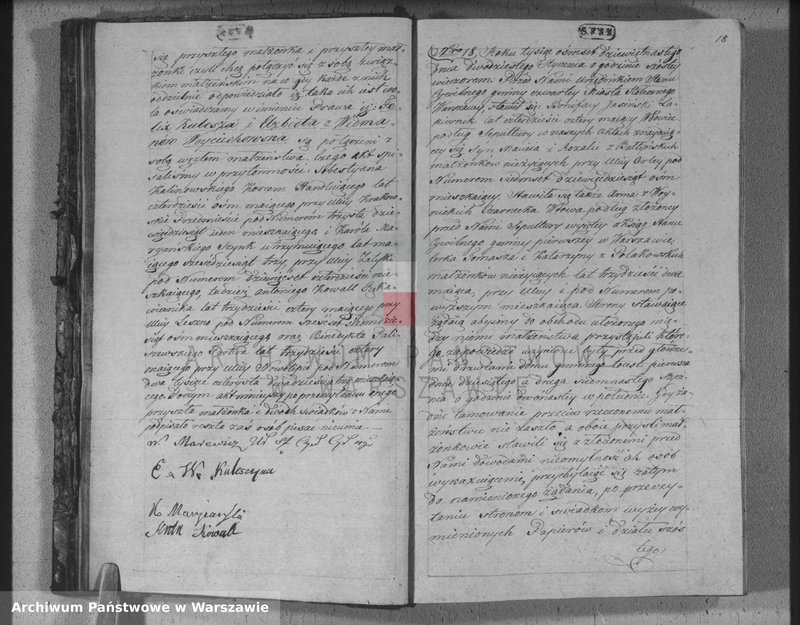 się przyszłego małżonka i przyszłey mał-
żonki czyli chcą połączyć się z sobą związ-
kiem małżeńskim na co gdy każde z nich
oddzielnie odpowiedziało iż taka ich iest wo-
la oświadczamy w imieniu Prawa iż
Kulesza i Elżbieta z
Woyciechowska są połączeni z
sobą węzłem małżeństwa. Czego akt spi-
saliśmy w przytomności Sebestyana
Kalinowskiego Korcem Handluiącego lat
czterdzieści ośm maiącego przy Ulicy Krakow-
skie Przedmieście pod Numerem trzysta dzie-
więćdziesiąt mieszkaiącego i Karola Ma-
ryańskiego Szynk utrzymuiącego lat ma-
iącego sześćdziesiąt trzy przy Ulicy
pod Numerem dziewięćset czterdzieści mie-
szkaiącego, tudzież Antoniego Kowall
lat trzydzieści cztery maiącego przy
Ulicy Leszno pod Numerem Sześćset Siedmdzie-
siąt ośm mieszkaiącego oraz Benedykta
lat trzydzieści cztery
maiącego przy Ulicy Nowolipie pod Numerem
dwa tysiące czterysta dwadzieścia trzy mieszkaią-
cego. Poczym akt ninieyszy po przeczytaniu onego
przyszła małżonka i dwóch świadków z Nami
podpisało reszta zaś osób pisać nieumie
Marewicz
E W. Kuleszyna
K Maryański
Antn Kowall
18
Nro 18. Roku tysiąc ośmset dziewiętnastego
dnia dwudziestego Stycznia o godzinie szóstey
wieczorem. Przed Nami Urzędnikiem Stanu
Cywilnego gminy czwartey Miasta Stołecznego
Warszawy Stawił się Bonifacy Jasiński
lat czterdzieści cztery maiący Wdowiec
podług Sepultury w naszych Aktach znayduią-
cy się Syn Macieia i Rozalii z
małżonków nieżyiących przy Ulicy Orley pod
Numerem Siedmset dziewięćdziesiąt ośm
mieszkaiący. Stawiła się także Anna z Woy-
nickich Czarnecka Wdowa podług złożoney
przed Nami Sepultury wyiętey z ksiąg Stanu
Cywilnego gminy pierwszey w Warszawie,
Córka Tomasza i Katarzyny z Polakowskich
małżonków nieżyiących lat trzydzieści dwa
maiąca, przy Ulicy i pod Numerem po-
wyższym mieszkaiąca. Strony Stawaiące
żądaią abyśmy do obchodu ułożonego mię-
dzy niemi małżeństwa przystąpili, które-
go zapowiedzi uczynione były przed główne-
mi drzwiami domu gminnego to iest, pierwsza
dnia dziesiątego a druga siedmnastego Stycz-
nia o godzinie dwunastey w południe. Gdy ża-
dne tamowanie przeciw rzeczonemu mał-
żeństwu nie zaszło, a oboie przyszli mał-
żonkowie stawili się z złożonemi przed
Nami dowodami nieomylność ich osób
wykazuiącemi, przychylaiąc się zatym
do namienionego żądania, po przeczy-
taniu stronom i świadkom wyżey wy-
mienionych Papierów i działu szós-
tego
ARCHIWUM PAŃSTWOWE
W WARSZAWIE
Archiwum Państwowe w Warszawie